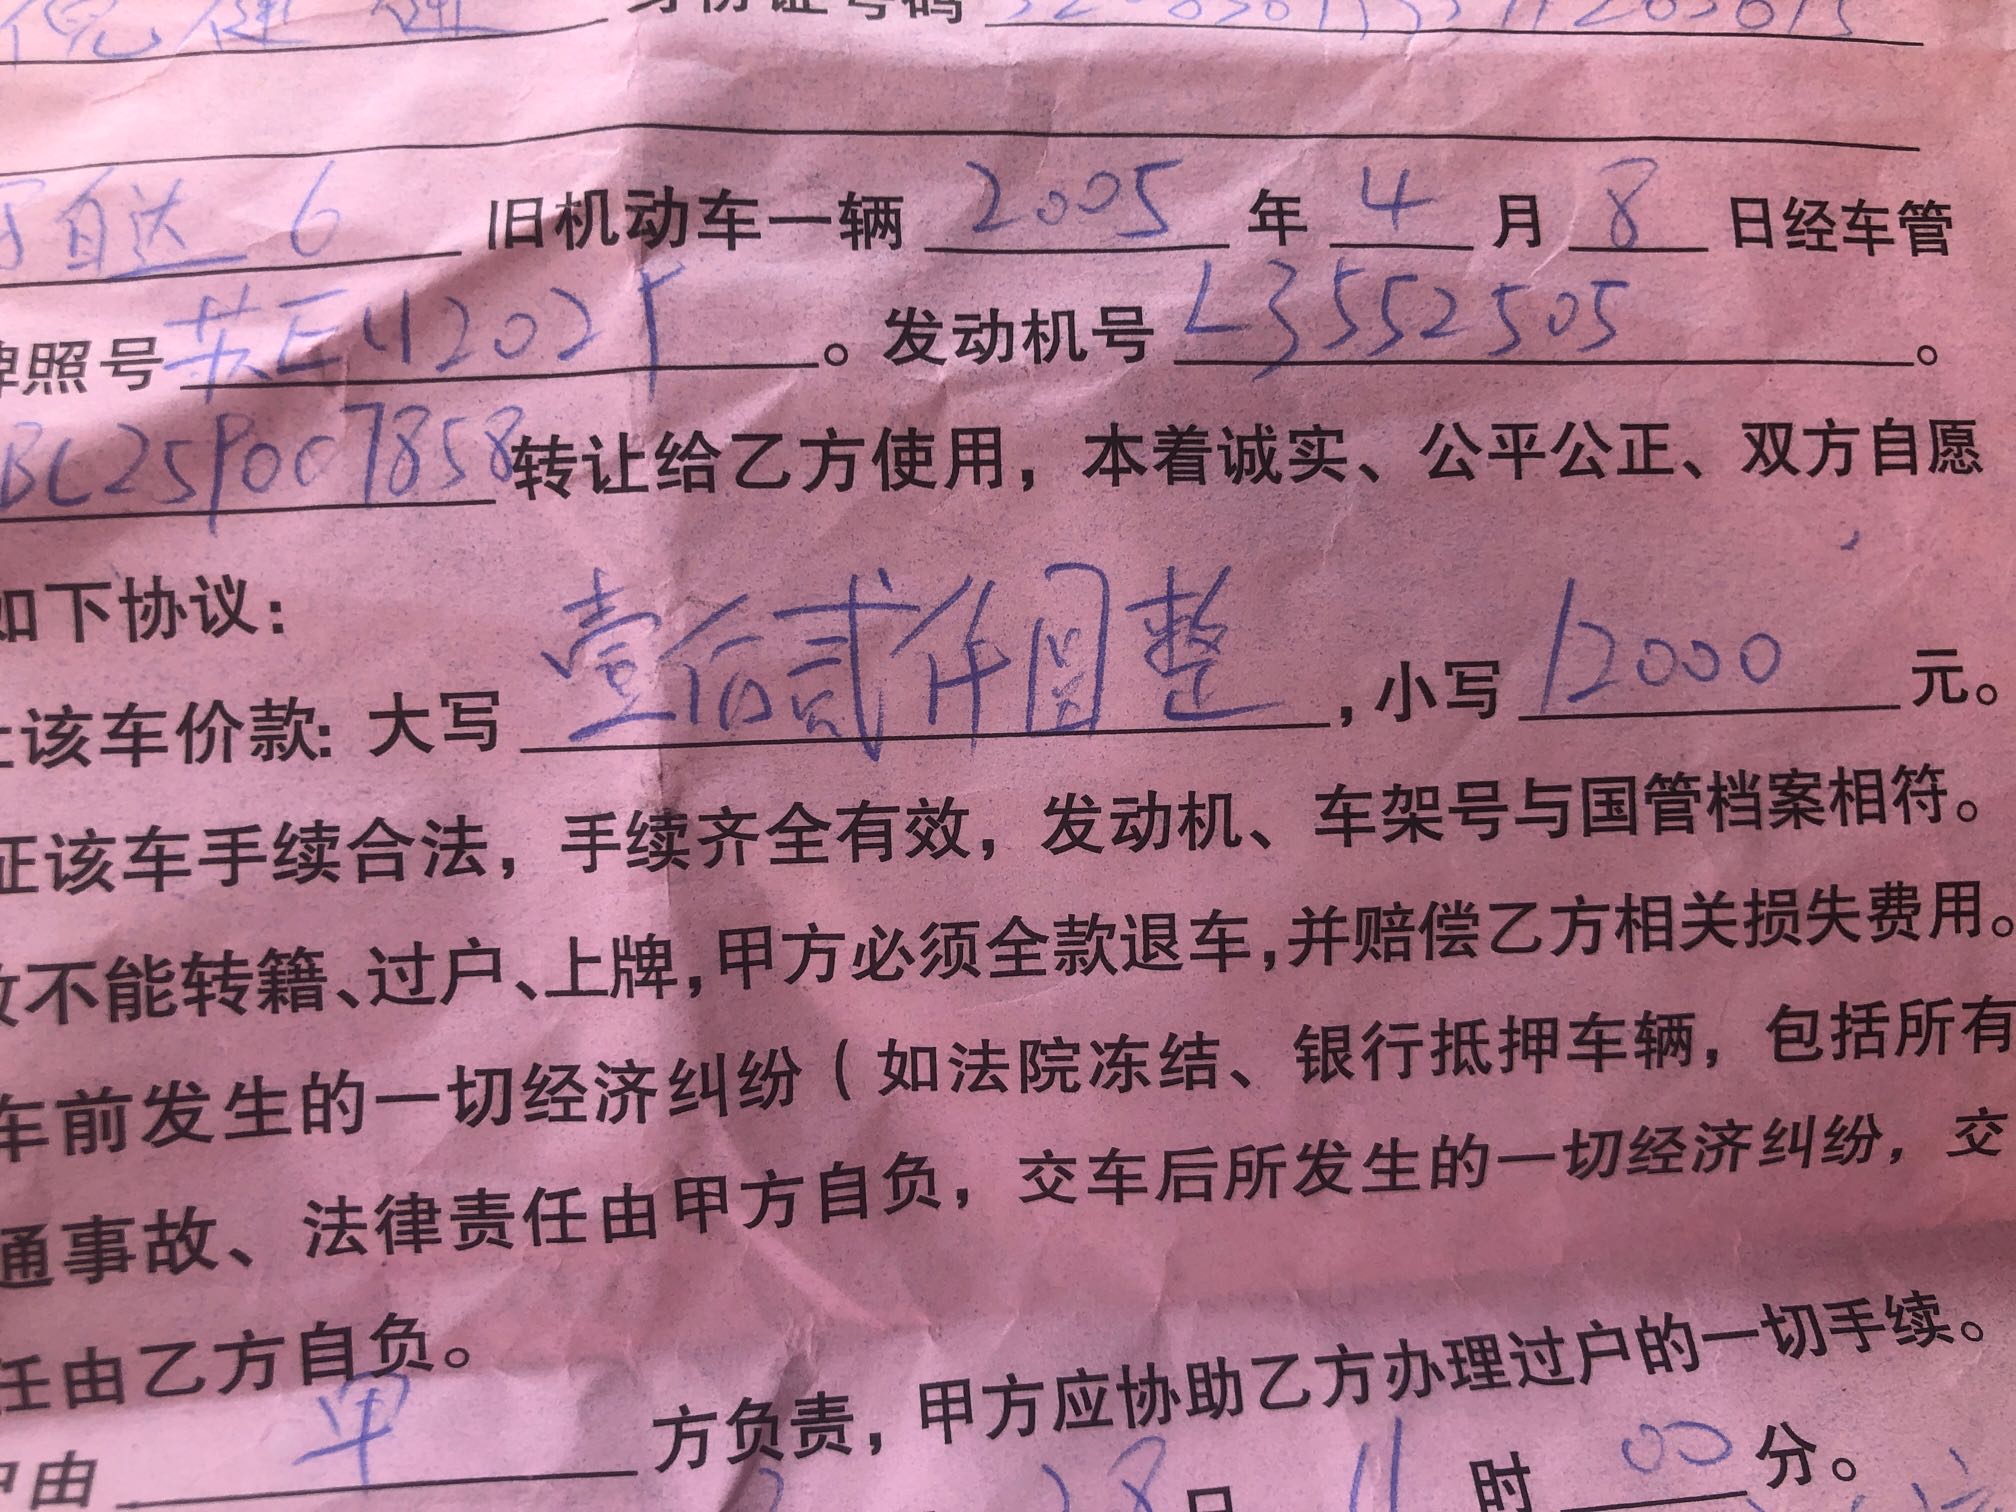 身份证号码
自达6 旧机动车一辆 2005 年 4 月 8 日经车管
牌照号 苏E 。发动机号 L3552505 。
转让给乙方使用，本着诚实、公平公正、双方自愿
如下协议：
让该车价款: 大写 壹佰贰仟圆整 , 小写 12000 元。
证该车手续合法，手续齐全有效，发动机、车架号与国管档案相符。
故不能转籍、过户、上牌, 甲方必须全款退车, 并赔偿乙方相关损失费用。
车前发生的一切经济纠纷（如法院冻结、银行抵押车辆，包括所有
通事故、法律责任由甲方自负，交车后所发生的一切经济纠纷，交
任由乙方自负。
户由 甲 方负责，甲方应协助乙方办理过户的一切手续。
28 日 11 时 00 分。